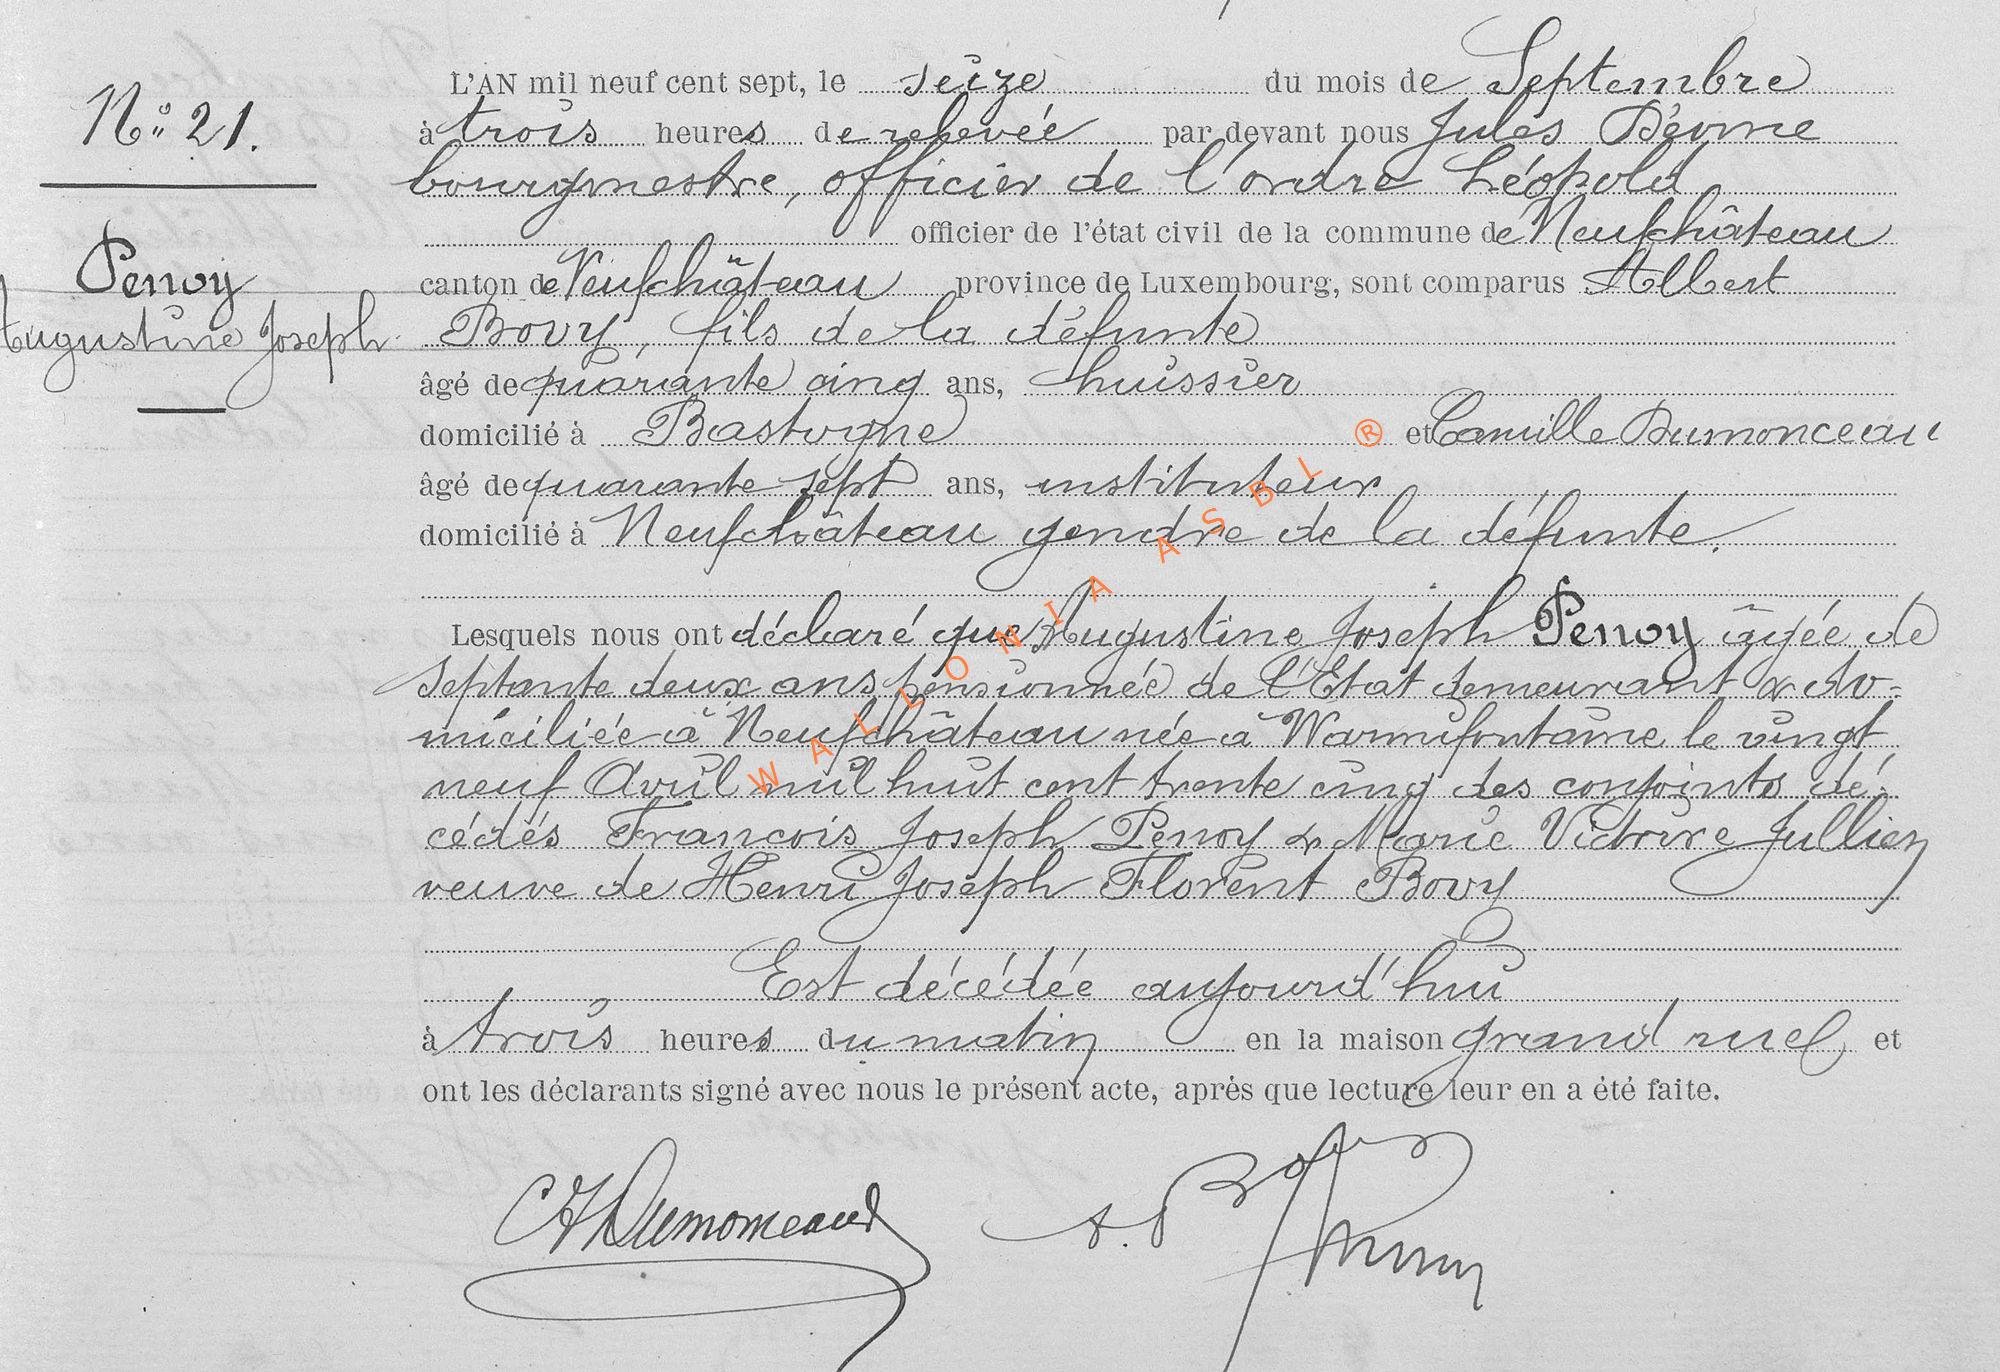 N° 21.
Penoy
Augustine Joseph
L'AN mil neuf cent sept, le seize du mois de Septembre
à trois heures de relevée par devant nous Jules
bourgmestre, officier de l'ordre Léopold
officier de l'état civil de la commune de Neufchâteau
canton de Neufchâteau province de Luxembourg, sont comparus Albert
Bovy, fils de la défunte
âgé de quarante cinq ans, huissier
domicilié à Bastogne et Camille Dumonceau
âgé de quarante sept ans, instituteur
domicilié à Neufchâteau gendre de la défunte.
Lesquels nous ont déclaré que Augustine Joseph Penoy âgée de
septante deux ans pensionnée de l'Etat demeurant & do-
miciliée à Neufchâteau née à Warmifontaine le vingt
neuf Avril mil huit cent trente cinq des conjoints dé-
cédés Francois Joseph Penoy & Marie Victoire Jullien
veuve de Henri Joseph Florent Bovy
Est décédée aujourd'hui
à trois heures du matin en la maison grand rue et
ont les déclarants signé avec nous le présent acte, après que lecture leur en a été faite.
Dumonceau A. Bovy
WALLONIA ASBL ®